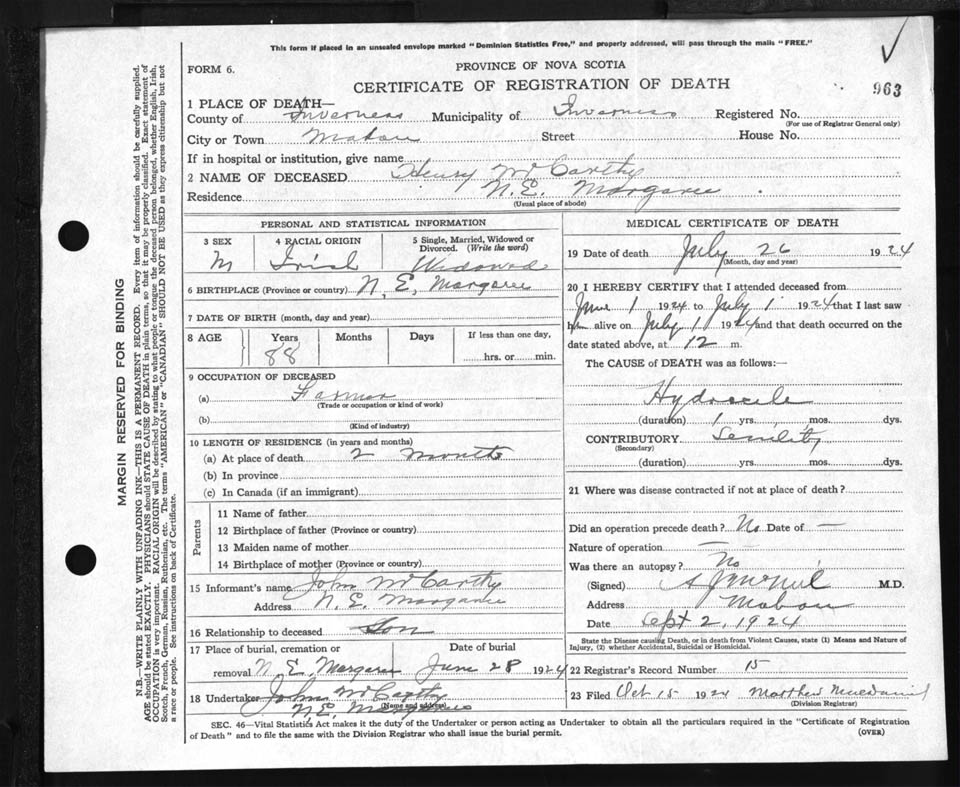 This form if placed in an unsealed envelope marked "Dominion Statistics Free," and properly addressed, will pass through the mails "FREE."
FORM 6.
PROVINCE OF NOVA SCOTIA
CERTIFICATE OF REGISTRATION OF DEATH
963
1 PLACE OF DEATH—
County of Inverness Municipality of Inverness Registered No.
(For use of Registrar General only)
City or Town Mabou Street House No.
If in hospital or institution, give name
2 NAME OF DECEASED Henry McCarthy
Residence N.E. Margaree
(Usual place of abode)
PERSONAL AND STATISTICAL INFORMATION
3 SEX 4 RACIAL ORIGIN 5 Single, Married, Widowed or Divorced. (Write the word)
M Irish Widowed
6 BIRTHPLACE (Province or country) N. E. Margaree
7 DATE OF BIRTH (month, day and year)
8 AGE Years Months Days If less than one day,
88 hrs. or min.
9 OCCUPATION OF DECEASED
(a) Farmer
(Trade or occupation or kind of work)
(b)
(Kind of industry)
10 LENGTH OF RESIDENCE (in years and months)
(a) At place of death 2 Months
(b) In province
(c) In Canada (if an immigrant)
Parents
11 Name of father
12 Birthplace of father (Province or country)
13 Maiden name of mother
14 Birthplace of mother (Province or country)
15 Informant's name John McCarthy
Address N. E. Margaree
16 Relationship to deceased Son
17 Place of burial, cremation or removal Date of burial
N. E. Margaree June 28 1924
18 Undertaker John McCarthy
(Name and address)
N.E. Margaree
MEDICAL CERTIFICATE OF DEATH
19 Date of death July 26 1924
(Month, day and year)
20 I HEREBY CERTIFY that I attended deceased from
June 1 1924 to July 1 1924 that I last saw
him alive on July 1 1924 and that death occurred on
date stated above, at 12 m.
The CAUSE of DEATH was as follows:—
Hydrocele
(duration) 1 yrs. mos. dys.
CONTRIBUTORY Senility
(Secondary)
(duration) yrs. mos. dys.
21 Where was disease contracted if not at place of death?
Did an operation precede death? No Date of —
Nature of operation —
Was there an autopsy? No
(Signed) M.D.
Address Mabou
Date Sept 2, 1924
State the Disease causing Death, or in death from Violent Causes, state (1) Means and Nature of Injury, (2) whether Accidental, Suicidal or Homicidal.
22 Registrar's Record Number 15
23 Filed Oct 15 1924 Matthew
(Division Registrar)
SEC. 46—Vital Statistics Act makes it the duty of the Undertaker or person acting as Undertaker to obtain all the particulars required in the "Certificate of Registration
of Death" and to file the same with the Division Registrar who shall issue the burial permit.
(OVER)
MARGIN RESERVED FOR BINDING
N.B.—WRITE PLAINLY WITH UNFADING INK—THIS IS A PERMANENT RECORD. Every item of information should be carefully supplied.
AGE should be stated EXACTLY. PHYSICIANS should STATE CAUSE OF DEATH in plain terms, so that it may be properly classified. Exact statement of
OCCUPATION is very important. RACIAL ORIGIN will be described by stating to what people or tongue the deceased person belonged, whether English, Irish,
Scotch, French, German, Russian, Ruthenian, etc. The terms "AMERICAN" or "CANADIAN" SHOULD NOT BE USED as they express citizenship but not
a race or people. See instructions on back of Certificate.